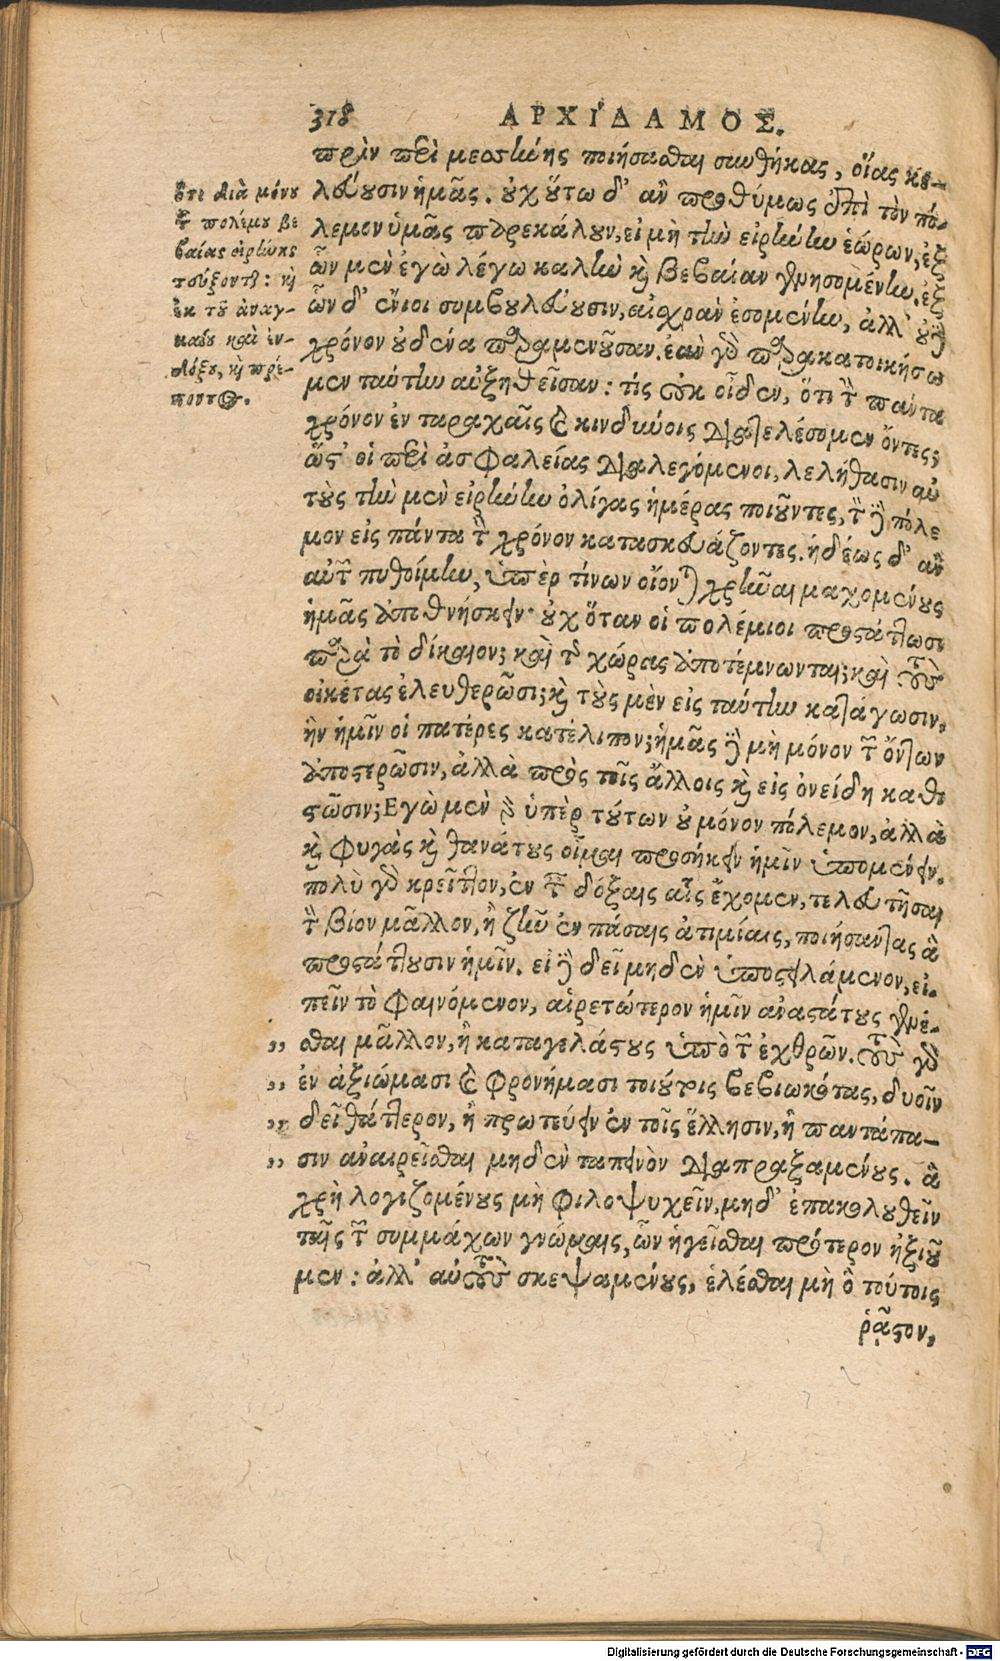 318 ΑΡΧΙΔΑΜΟΣ.
πρὶν περὶ μεσσήνης ποιήσασθαι συνθήκας, οἵας κε-
λεύουσιν ἡμᾶς. οὐχ οὕτω δ' ἂν προθύμως ἐπὶ τὸν πό-
λεμον ὑμᾶς παρεκάλουν, εἰ μὴ τὴν εἰρήνην ἑώρων, ἐξ
ὧν μὲν ἐγὼ λέγω καλὴν καὶ βεβαίαν γενησομένην, ἐξ
ὧν δ' ἔνιοι συμβουλεύουσιν, αἰσχρὰν ἐσομένην, ἀλλ' οὐδὲ
χρόνον οὐδένα παραμενοῦσαν. ἐὰν γὰρ παρακατοικήσω
μεν ταύτην αὐξηθεῖσαν: τίς οὐκ οἶδεν, ὅτι τὸν πάντα
χρόνον ἐν ταραχαῖς καὶ κινδύνοις διατελέσομεν ὄντες;
ὥστ' οἱ περὶ ἀσφαλείας διαλεγόμενοι, λελήθασιν αὑ
τοὺς τὴν μὲν εἰρήνην ὀλίγας ἡμέρας ποιοῦντες, τὸν δὲ πόλε
μον εἰς πάντα τὸν χρόνον κατασκευάζοντες. ἡδέως δ' ἂν
αὐτῶν πυθοίμην, ὑπὲρ τίνων οἴονται χρῆναι μαχομένους
ἡμᾶς ἀποθνήσκειν· οὐχ ὅταν οἱ πολέμιοι προστάττωσι
παρὰ τὸ δίκαιον; καὶ τῆς χώρας ἀποτέμνωνται; καὶ τοὺς
οἰκέτας ἐλευθερῶσι; καὶ τοὺς μὲν εἰς ταύτην κατάγωσιν,
ἣν ἡμῖν οἱ πατέρες κατέλιπον; ἡμᾶς δὲ μὴ μόνον τῶν ὄντων
ἀποστερῶσιν, ἀλλὰ πρὸς τοῖς ἄλλοις καὶ εἰς ὀνείδη καθι
στῶσιν; Εγὼ μὲν γὰρ ὑπὲρ τούτων οὐ μόνον πόλεμον, ἀλλὰ
καὶ φυγὰς καὶ θανάτους οἶμαι προσήκειν ἡμῖν ὑπομένειν.
πολὺ γὰρ κρεῖττον, ἐν ταῖς δόξαις αἷς ἔχομεν, τελευτῆσαι
τὸν βίον μᾶλλον, ἢ ζῆν ἐν πάσαις ἀτιμίαις, ποιήσαντας ἃ
προστάττουσιν ἡμῖν. εἰ δὲ δεῖ μηδὲν ὑποστειλάμενον, εἰ-
πεῖν τὸ φαινόμενον, αἱρετώτερον ἡμῖν ἀναστάτους γενέ-
,, σθαι μᾶλλον, ἢ καταγελάστους ὑπὸ τῶν ἐχθρῶν. τοὺς γὰρ
,, ἐν ἀξιώμασι καὶ φρονήμασι τοιούτοις βεβιωκότας, δυοῖν
,, δεῖ θάτερον, ἢ πρωτεύειν ἐν τοῖς ἕλλησιν, ἢ παντάπα-
,, σιν ἀναιρεῖσθαι μηδὲν ταπεινὸν διαπραξαμένους. ἃ
χρὴ λογιζομένους μὴ φιλοψυχεῖν, μηδ' ἐπακολουθεῖν
ταῖς τῶν συμμάχων γνώμαις, ὧν ἡγεῖσθαι πρότερον ἠξιοῦ
μεν: ἀλλ' αὐτοὺς σκεψαμένους, ἑλέσθαι μὴ ὃ τούτοις
ῥᾷστον,
ὅτι διὰ μόνου
τοῦ πολέμου βε
βαίας εἰρήνης
τεύξονται: καὶ
ἐκ τοῦ ἀναγ-
καίου καὶ ἐν-
δόξου, καὶ πρέ-
ποντος.
Digitalisierung gefördert durch die Deutsche Forschungsgemeinschaft - DFG